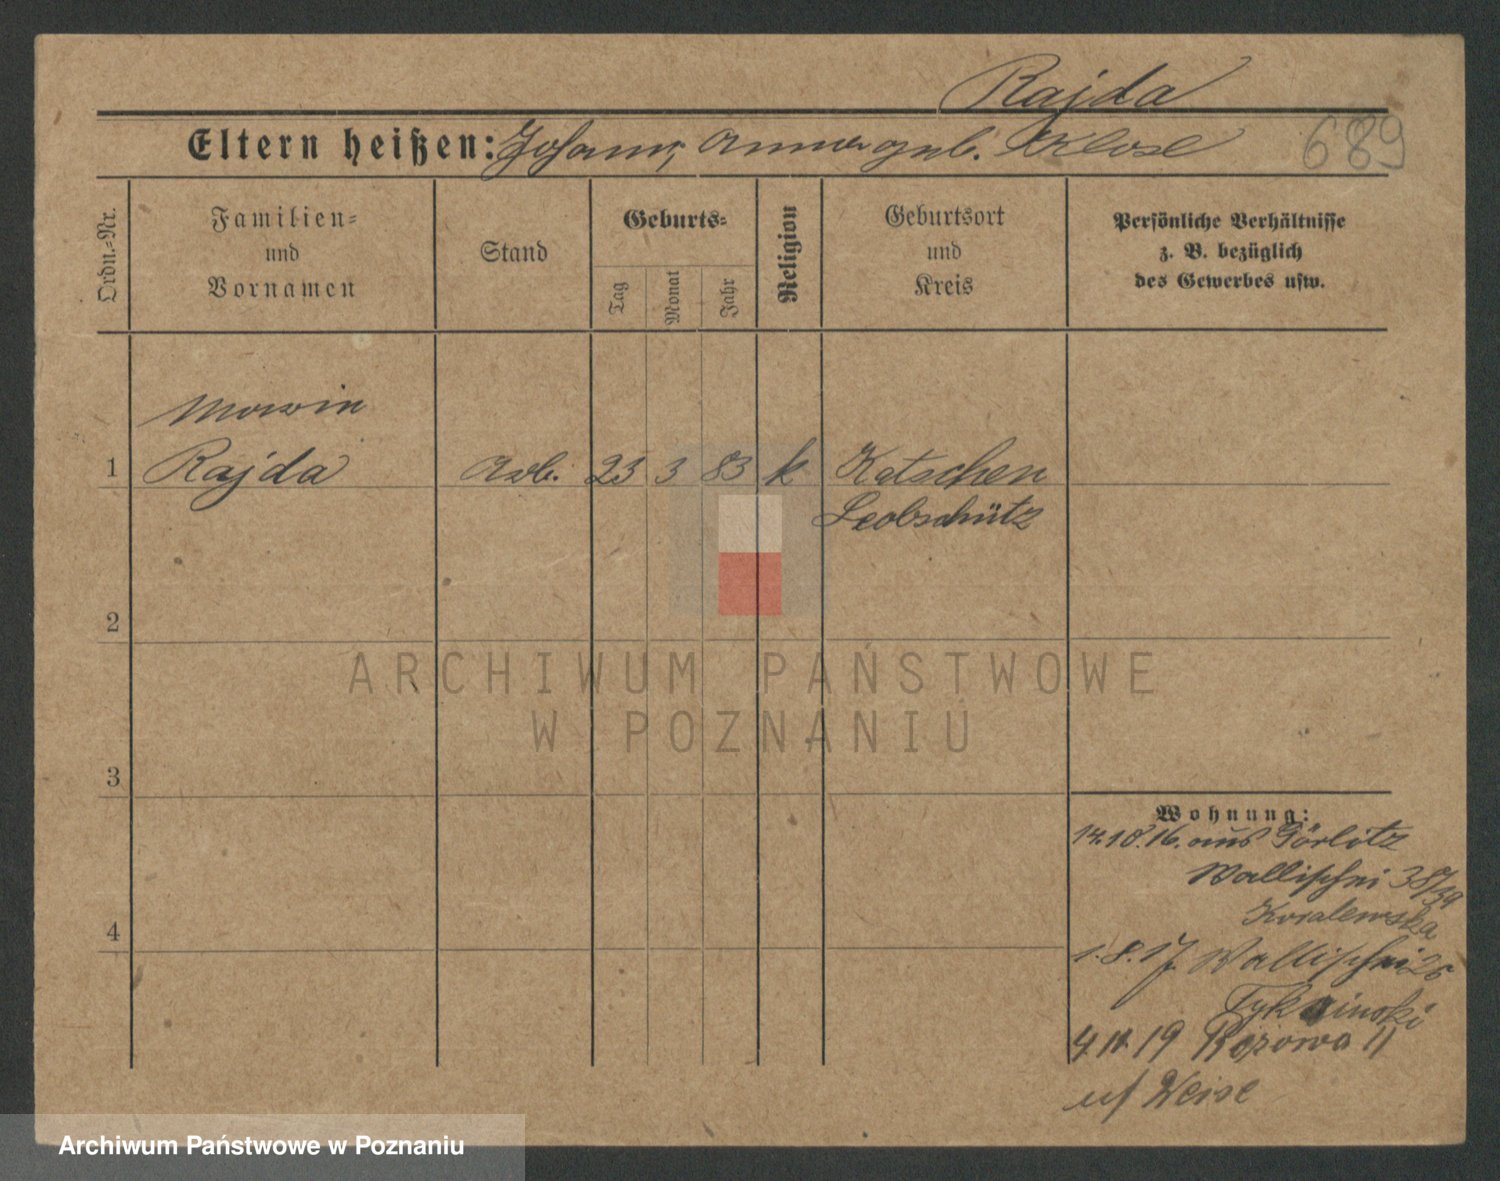 Rajda
Eltern heißen: Johann, Anna geb. Klose
689
Ordn.-Nr.
Familien-
und
Vornamen
Stand
Geburts-
Tag
Monat
Jahr
Religion
Geburtsort
und
Kreis
Persönliche Verhältnisse
z. B. bezüglich
des Gewerbes usw.
1
Rajda
Arb.
23
3
83
k
Katscher
Leobschütz
2
3
4
Wohnung:
14.10.16. aus Görlitz
Wallischei 38/39
Kowalewska
1.8.17. Wallischei
19
b/ Weise
ARCHIWUM PAŃSTWOWE
W POZNANIU
Archiwum Państwowe w Poznaniu